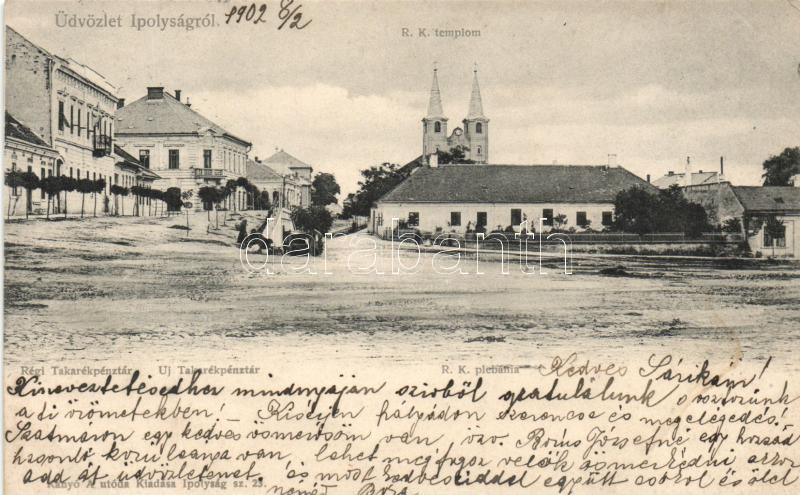 Üdvözlet Ipolyságról. 1902 8/2
R. K. templom
darabanth
Régi Takarékpénztár Uj Takarékpénztár R. K. plebánia
Kedves Sárikám!
Kineveztetésedhez mindnyájan szivből gratulálunk s osztozunk
a ti örömetekben! Kisérjen pályádon szerencse és megelégedés!
Szatmáron egy kedves ismerősöm van, özv. Józsefné egy hozzád
korú leánya van, lehet megfogsz velök ismerkedni akkor
add át üdvözletemet és most Kedveseiddel együtt csókol és ölel
Kanyó A utóda Kiadása Ipolyság sz. 23.